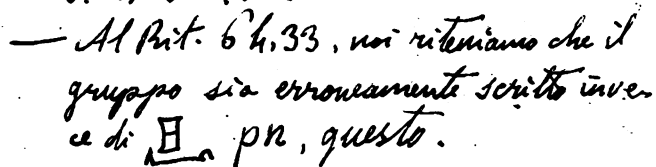 — Al Rit. 64,33, noi riteniamo che il
gruppo sia erroneamente scritto inve-
ce di pn, questo.